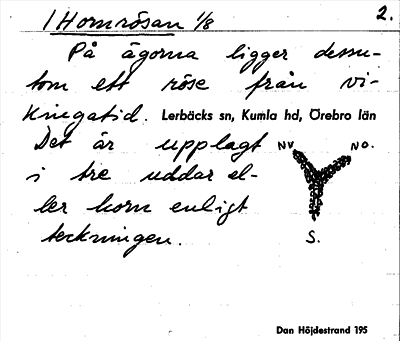 / Hornrösan 1/8 2.
På ägorna ligger dessu-
tom ett röse från vi-
kingatid. Lerbäcks sn, Kumla hd, Örebro län
Det är upplagt NV NO.
i tre uddar el-
ler horn enligt
teckningen. S.
Dan Höjdestrand 195